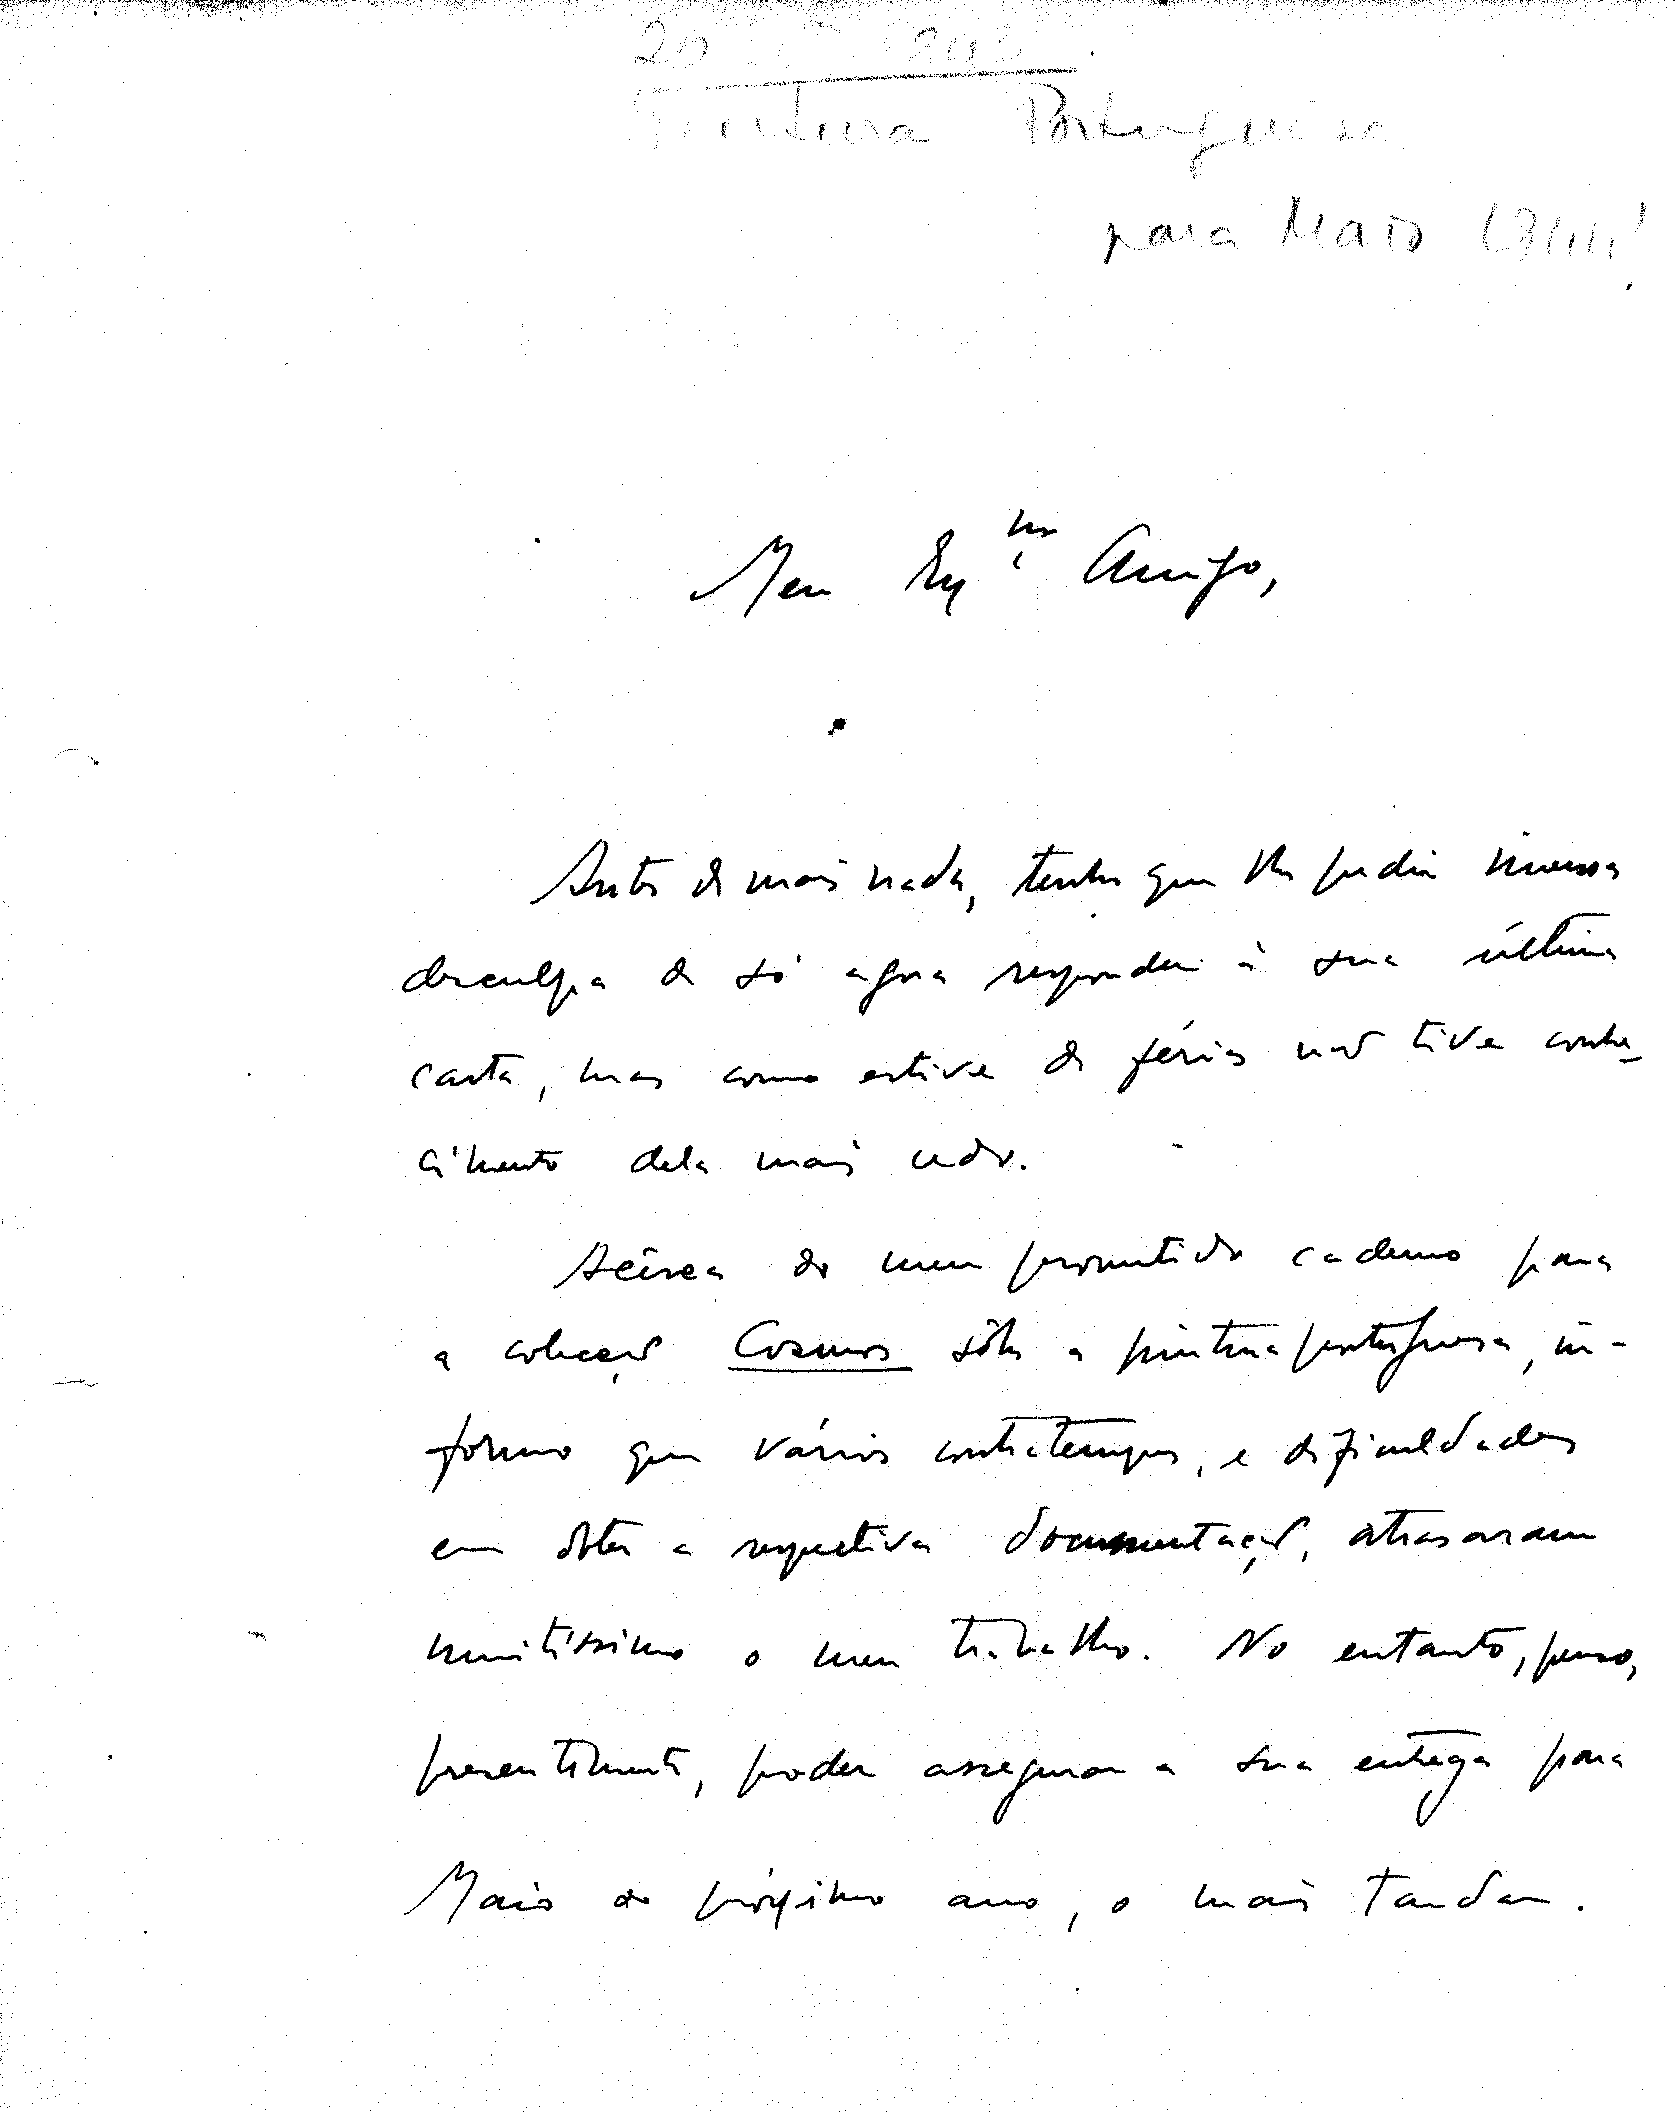 Pintura Portuguesa
para Maio
Meu Exmo Amigo,
Antes de mais nada, tenho que lhe pedir imensa
desculpa de só agora responder à sua última
carta, mas como estive de férias não tive conhe-
cimento dela mais cedo.
Acêrca do meu prometido caderno para
a colecção Cosmos sôbre a pintura portuguesa, in-
formo que vários contratempos, e dificuldades
em obter a respectiva documentação, atrasaram
muitíssimo o meu trabalho. No entanto, penso,
presentemente, poder assegurar a sua entrega para
Maio do próximo ano, o mais tardar.